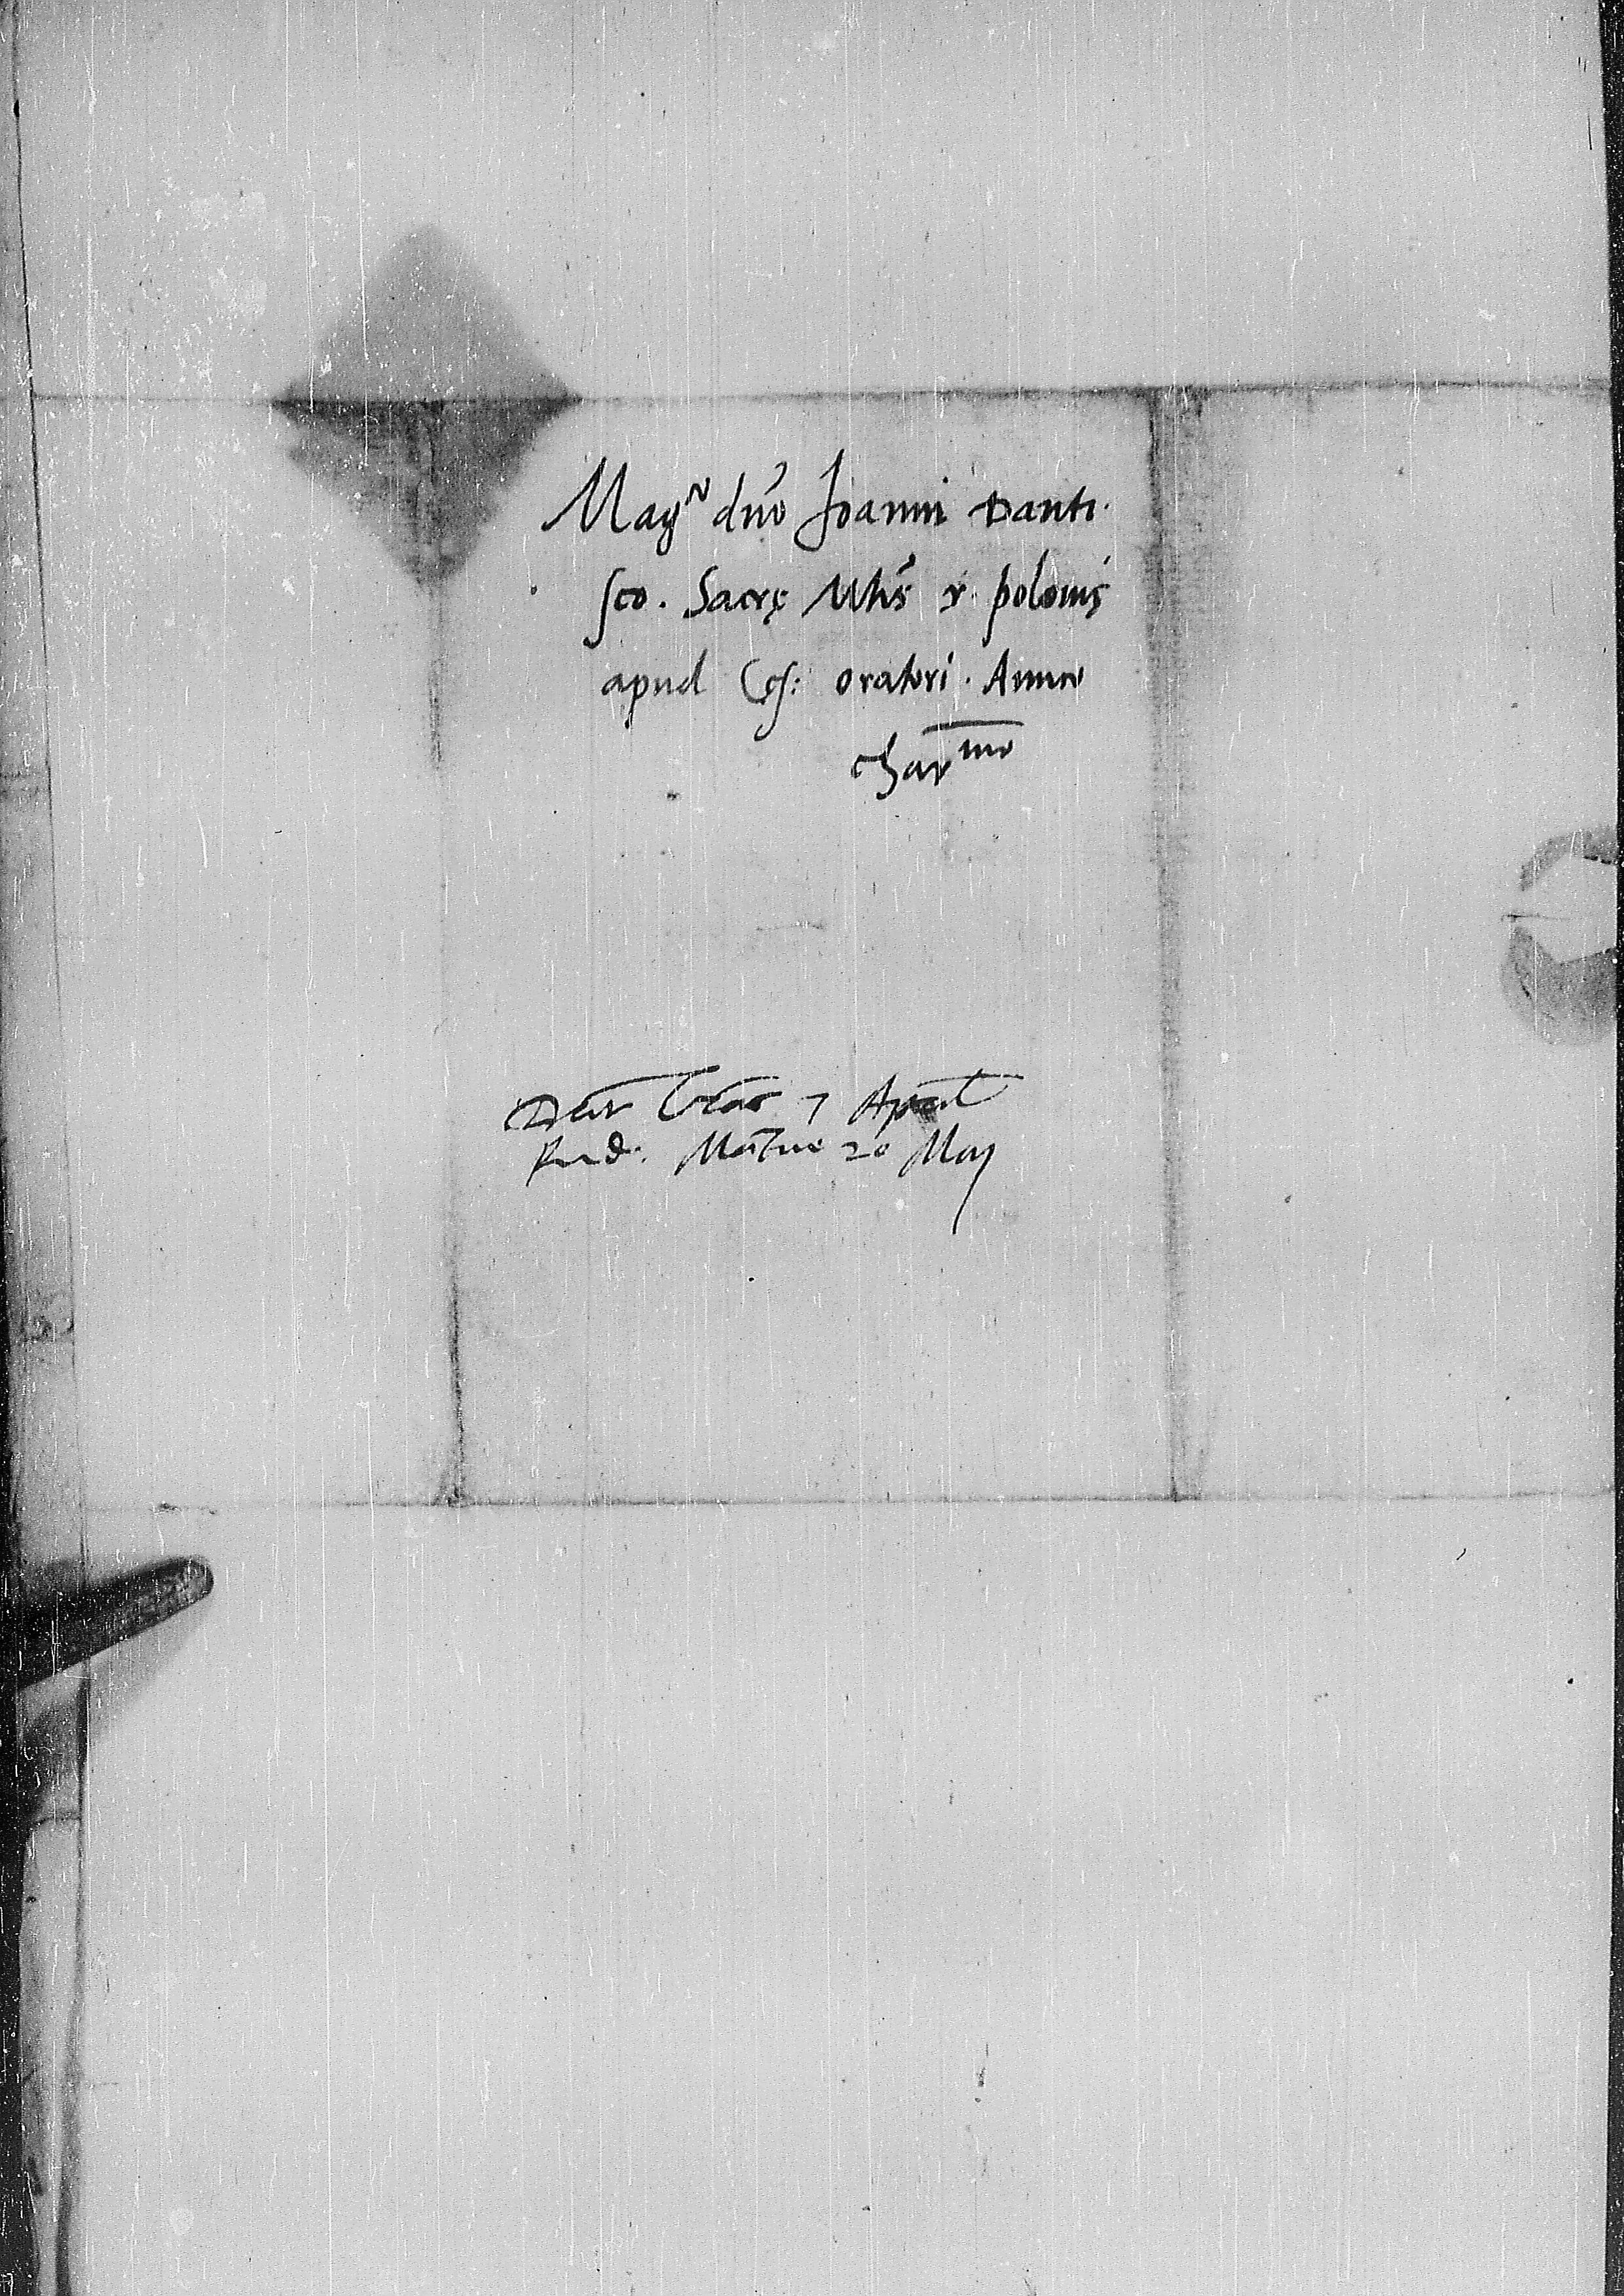 Mag^co dño Joanni Danti
sco. Sacrę Mtis r. polonię
apud Ces: oratori. Amico
char^mo
Dat 7 April
Red. Mantue 20 Maij